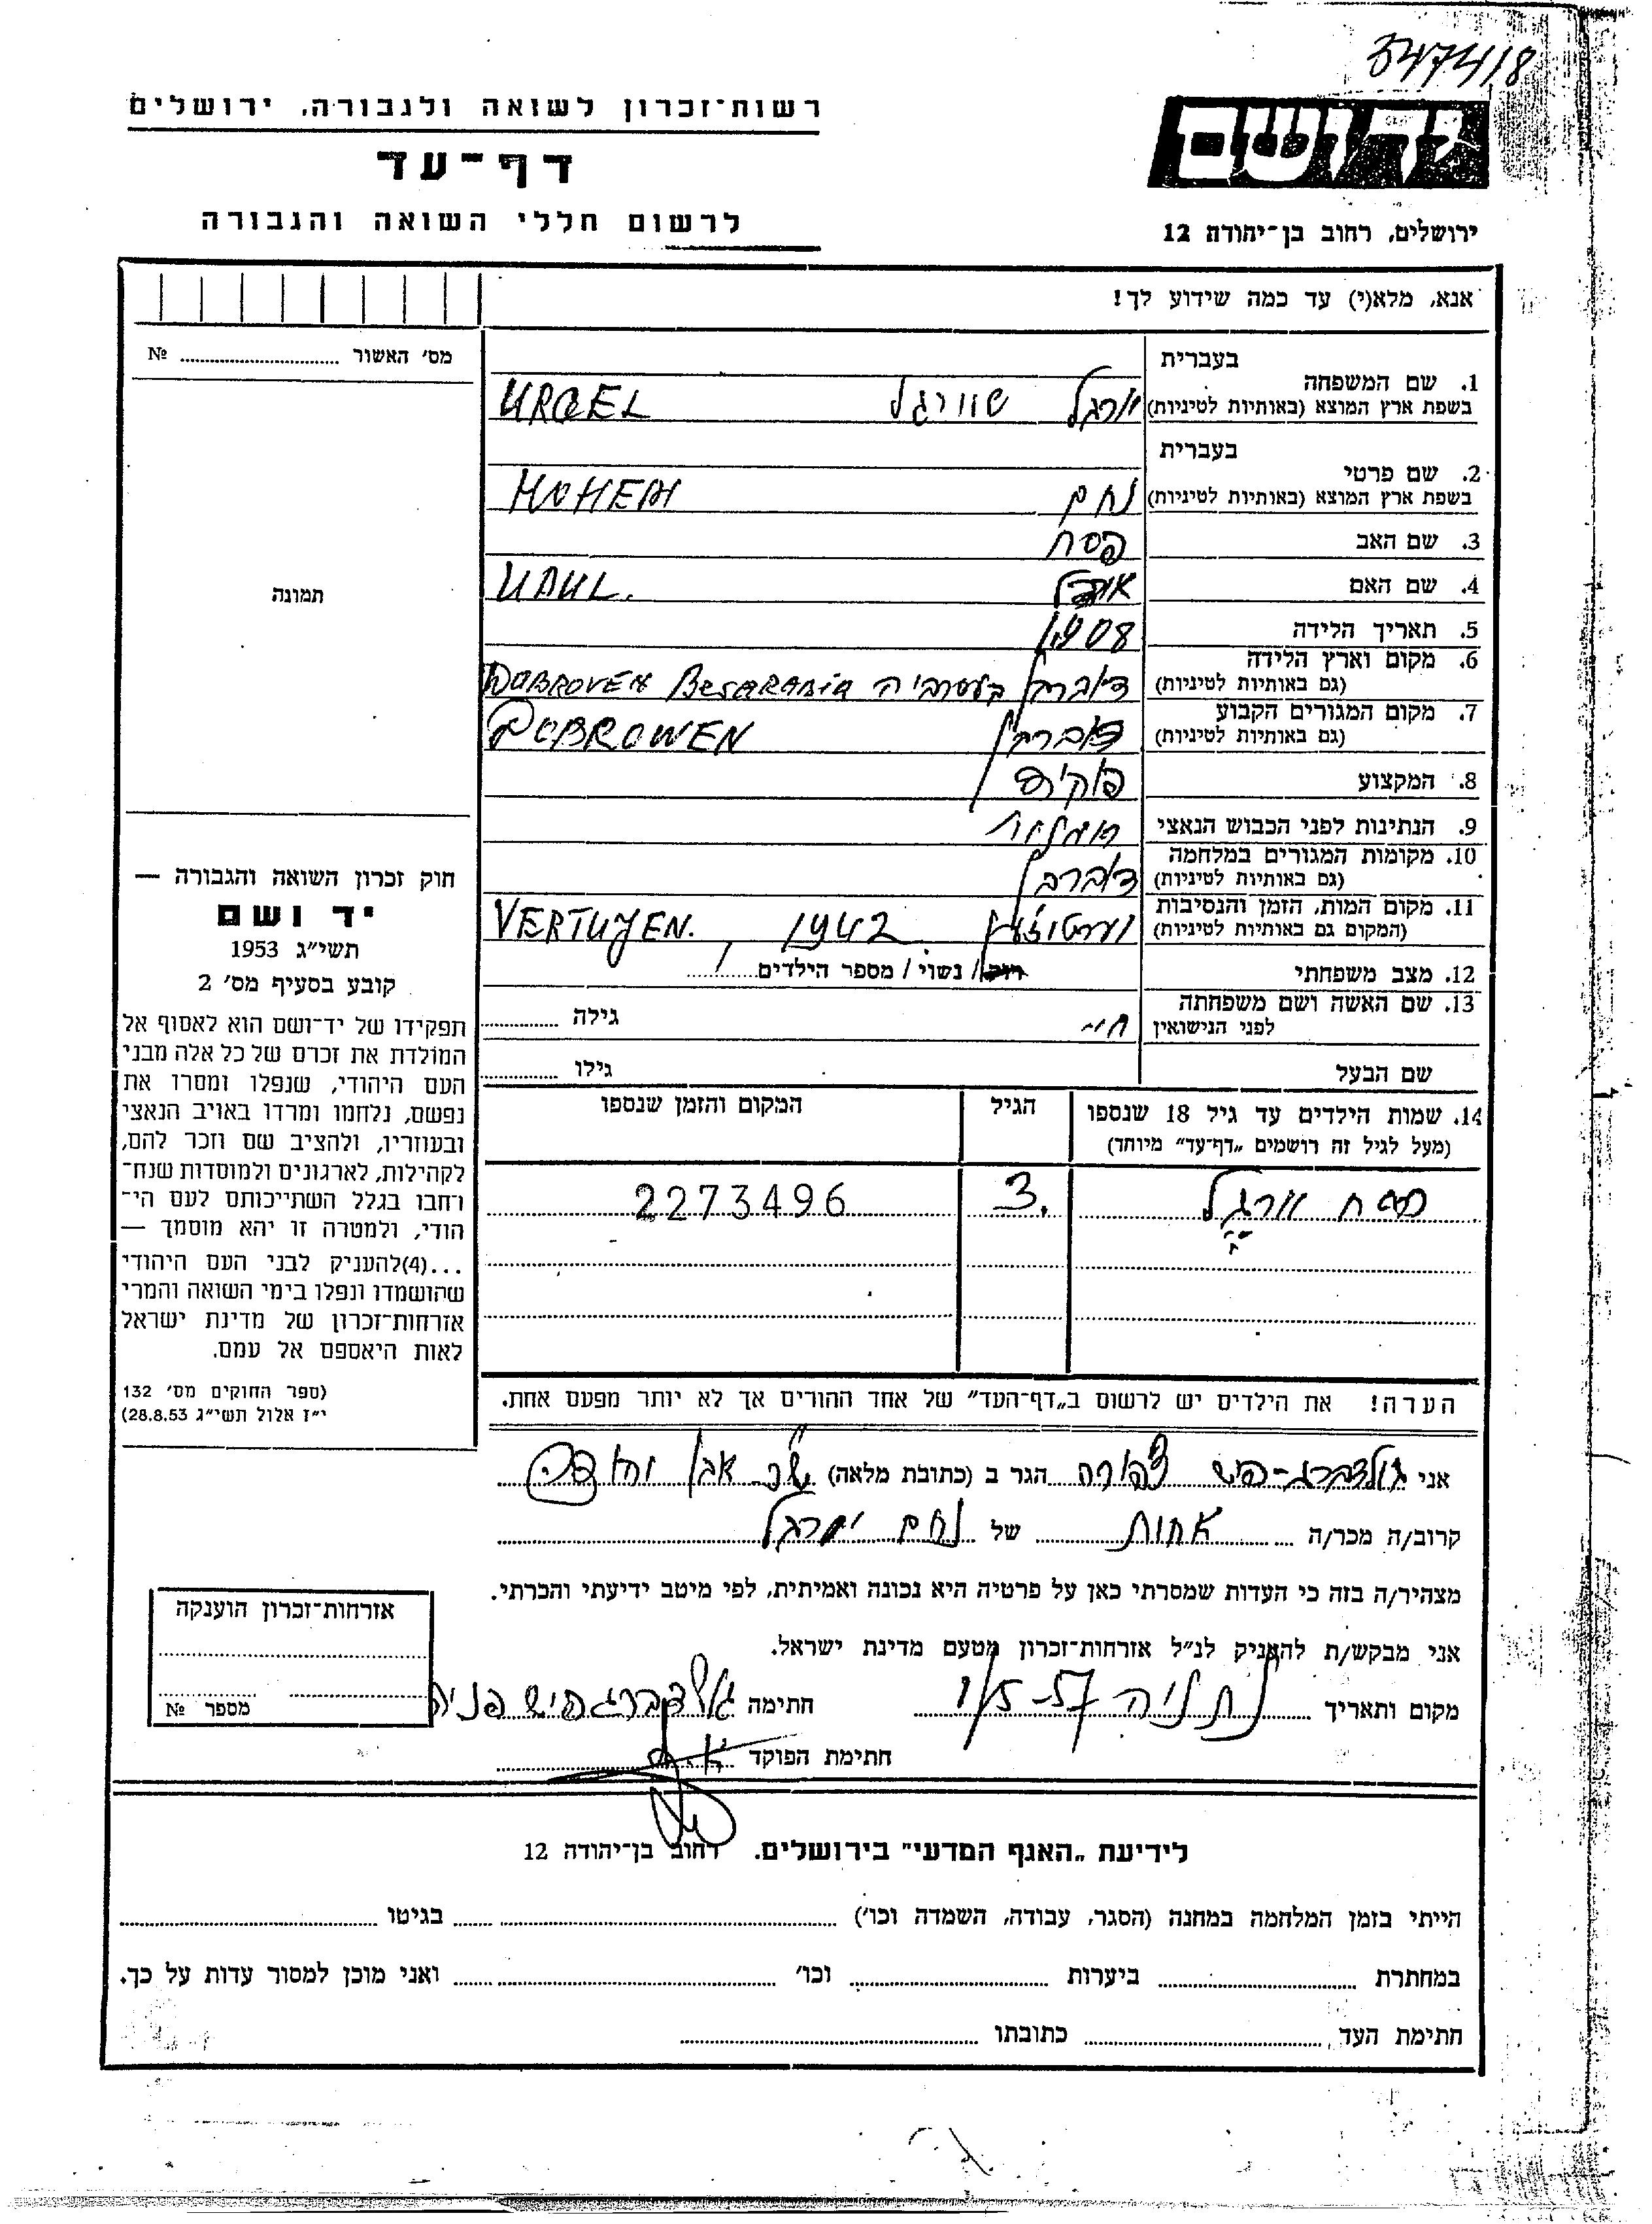 347418
ידושם
רשות־זכרון לשואה ולגבורה, ירושלים
דף־עד
לרשום חללי השואה והגבורה
ירושלים, רחוב בן־יהודה 12
אנא, מלא(י) עד כמה שידוע לך!
מס׳ האשור № 
בעברית
1. שם המשפחה
בשפת ארץ המוצא (באותיות לטיניות) URGEL
בעברית
2. שם פרטי
בשפת ארץ המוצא (באותיות לטיניות) נחם
3. שם האב פסח
4. שם האם
5. תאריך הלידה 1908
6. מקום וארץ הלידה
(גם באותיות לטיניות) בסרביה DOBROVEN BESARABIA
7. מקום המגורים הקבוע
(גם באותיות לטיניות) DOBROWEN
8. המקצוע פקיד
9. הנתינות לפני הכבוש הנאצי
10. מקומות המגורים במלחמה
(גם באותיות לטיניות)
11. מקום המות, הזמן והנסיבות
(המקום גם באותיות לטיניות) 1942 VERTUJEN.
12. מצב משפחתי רוק / נשוי / מספר הילדים 1
13. שם האשה ושם משפחתה
לפני הנישואין גילה
שם הבעל גילו
14. שמות הילדים עד גיל 18 שנספו הגיל המקום והזמן שנספו
(מעל לגיל זה רושמים „דף־עד״ מיוחד)
פסח 3. 2273496
הערה! את הילדים יש לרשום ב„דף־העד״ של אחד ההורים אך לא יותר מפעם אחת.
תמונה
חוק זכרון השואה והגבורה —
יד ושם
תשי״ג 1953
קובע בסעיף מס׳ 2
תפקידו של יד־ושם הוא לאסוף אל
המולדת את זכרם של כל אלה מבני
העם היהודי, שנפלו ומסרו את
נפשם, נלחמו ומרדו באויב הנאצי
ובעוזריו, ולהציב שם וזכר להם,
לקהילות, לארגונים ולמוסדות שנח־
רחבו בגלל השתייכותם לעם הי־
הודי, ולמטרה זו יהא מוסמך —
...(4)להעניק לבני העם היהודי
שהושמדו ונפלו בימי השואה והמרי
אזרחות־זכרון של מדינת ישראל
לאות היאספם אל עמם.
(ספר החוקים מס׳ 132
י״ז אלול תשי״ג 28.8.53)
אני גולדברג־פיש הגר ב (כתובת מלאה)
קרוב/ה מכר/ה אחות של נחם
מצהיר/ה בזה כי העדות שמסרתי כאן על פרטיה היא נכונה ואמיתית, לפי מיטב ידיעתי והכרתי.
אני מבקש/ת להעניק לנ״ל אזרחות־זכרון מטעם מדינת ישראל.
מקום ותאריך נתניה 1/5-57 חתימה גולדברג פיש פניה
חתימת הפוקד
אזרחות־זכרון הוענקה
מספר №
לידיעת „האגף המדעי״ בירושלים. רחוב בן־יהודה 12
הייתי בזמן המלחמה במחנה (הסגר, עבודה, השמדה וכו׳) בגיטו
במחתרת ביערות וכו׳ ואני מוכן למסור עדות על כך.
חתימת העד כתובתו